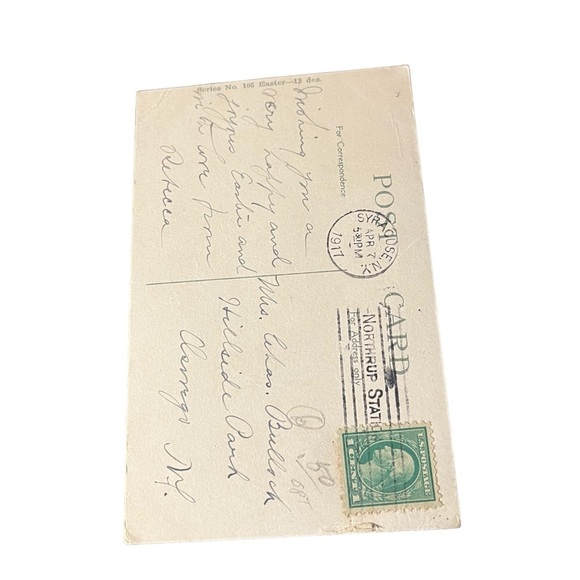 Series No. 105 Easter—12 des.
POST CARD
For Correspondence
For Address only
SYRACUSE, N.Y.
APR 7
5 PM
1917
NORTHRUP STATION
U.S. POSTAGE
1 CENT 1
Wishing you a
very happy and
joyous Easter and
with love from
Rebecca
Mrs. Chas. Bullock
Hillside Park
Oswego N.Y.
50